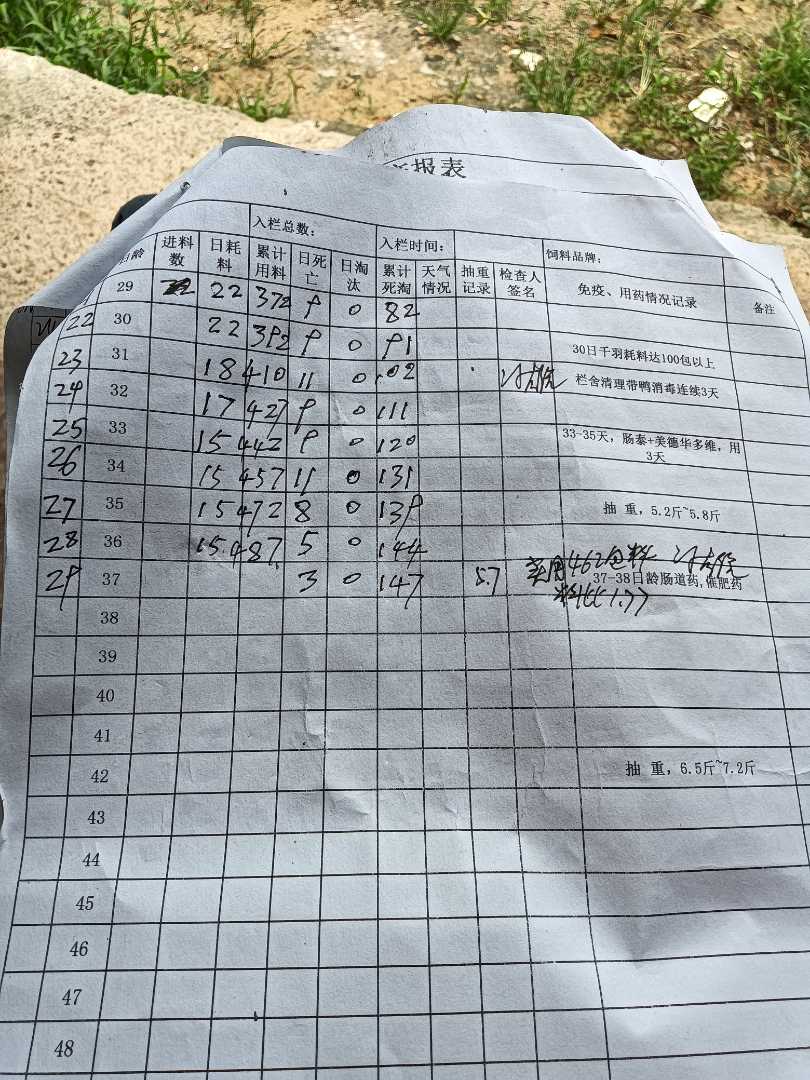 报表
入栏总数: 入栏时间: 饲料品牌:
日龄 进料数 日耗料 累计用料 日死亡 日淘汰 累计死淘 天气情况 抽重记录 检查人签名 免疫、用药情况记录 备注
29 22 372 9 0 82
22 30 22 392 9 0 91 30日千羽耗料达100包以上
23 31 18 410 11 0 102 栏舍清理带鸭消毒连续3天
24 32 17 427 9 0 111
25 33 15 442 9 0 120 33-35天，肠泰+美德华多维，用3天
26 34 15 457 11 0 131
27 35 15 472 8 0 139 抽 重，5.2斤~5.8斤
28 36 15 487 5 0 144
29 37 3 0 147 5.7 实用462包料
37-38日龄肠道药,催肥药
料比1.77
38
39
40
41
42 抽 重，6.5斤~7.2斤
43
44
45
46
47
48